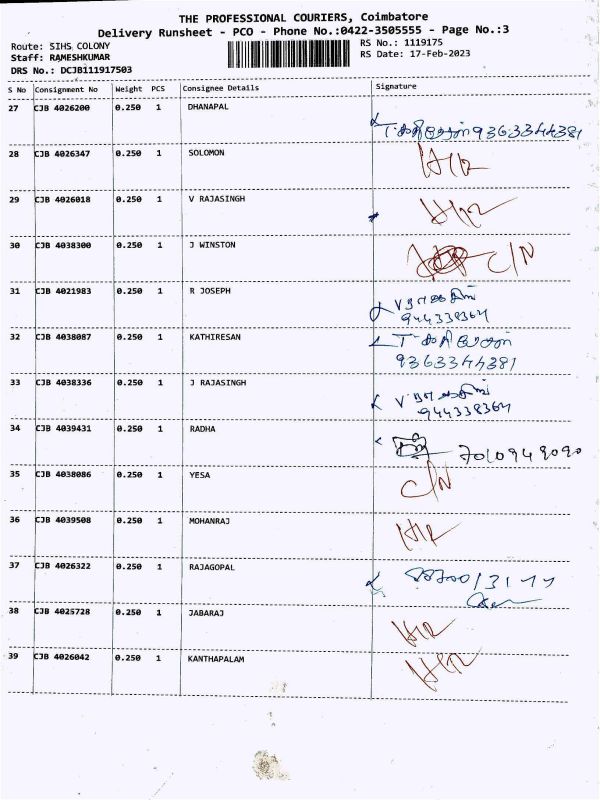 THE PROFESSIONAL COURIERS, Coimbatore
Delivery Runsheet - PCO - Phone No.:0422-3505555 - Page No.:3
Route: SIHS COLONY RS No.: 1119175
Staff: RAMESHKUMAR RS Date: 17-Feb-2023
DRS No.: DCJB111917503
S No Consignment No Weight PCS Consignee Details Signature
27 CJB 4026200 0.250 1 DHANAPAL
T. கதிரேசன் 9363344381
28 CJB 4026347 0.250 1 SOLOMON
29 CJB 4026018 0.250 1 V RAJASINGH
30 CJB 4038300 0.250 1 J WINSTON
C/N
31 CJB 4021983 0.250 1 R JOSEPH
944338364
32 CJB 4038087 0.250 1 KATHIRESAN
T. கதிரேசன்
9363344381
33 CJB 4038336 0.250 1 J RAJASINGH
944338364
34 CJB 4039431 0.250 1 RADHA
7010949090
35 CJB 4038086 0.250 1 YESA
C/N
36 CJB 4039508 0.250 1 MOHANRAJ
37 CJB 4026322 0.250 1 RAJAGOPAL
38 CJB 4025728 0.250 1 JABARAJ
39 CJB 4026042 0.250 1 KANTHAPALAM